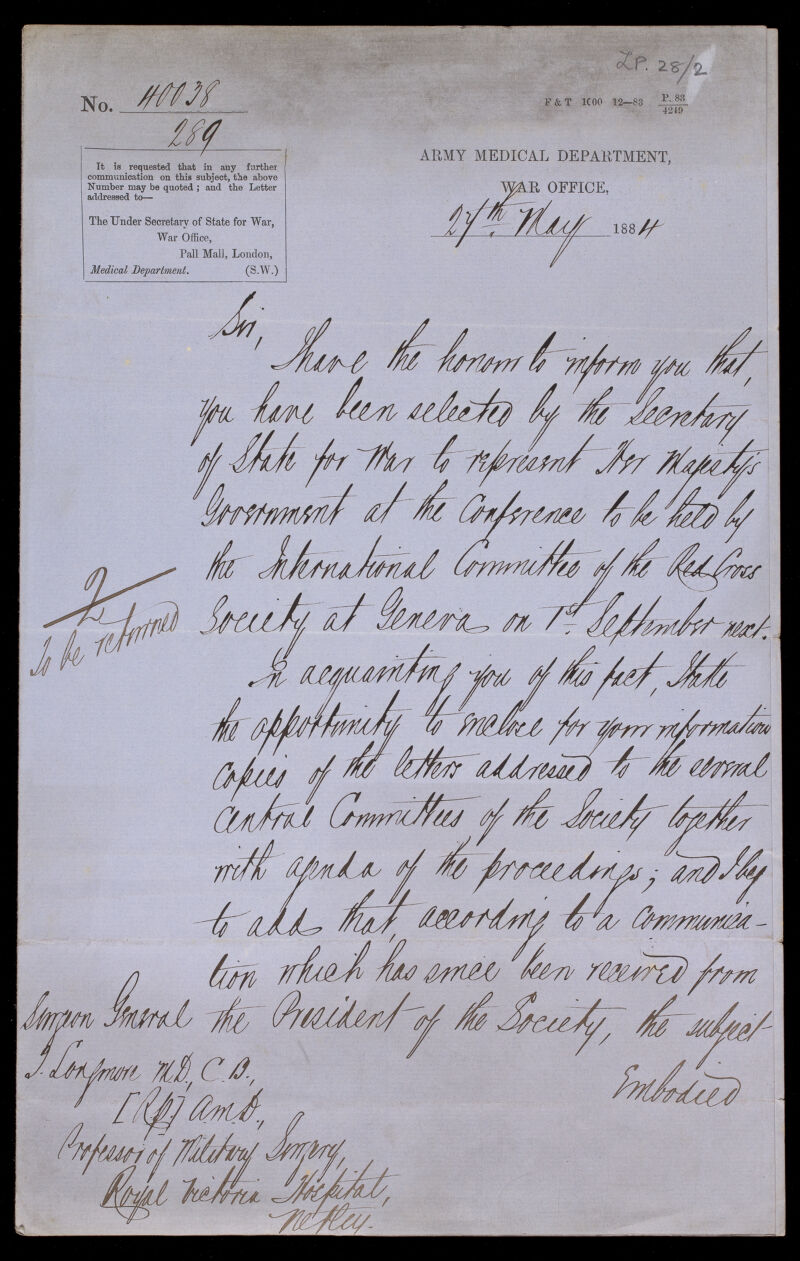 LP. 28/2
No. 40038
289
F & T 1000 12—83 P. 83
4249
It is requested that in any further
communication on this subject, the above
Number may be quoted; and the Letter
addressed to—
The Under Secretary of State for War,
War Office,
Pall Mall, London,
Medical Department. (S.W.)
ARMY MEDICAL DEPARTMENT,
WAR OFFICE,
27th May 1884
Sir,
I have the honour to inform you that,
you have been selected by the Secretary
of State for War to represent Her Majesty's
Government at the Conference to be held by
the International Committee of the Red Cross
Society at Geneva on 1st September next.
2
To be returned
In acquainting you of this fact, I take
the opportunity to enclose for your information
copies of the letters addressed to the several
Central Committees of the Society together
with agenda of the proceedings; and I beg
to add that, according to a communica-
tion which has since been received from
the President of the Society, the subject
Embodied
Surgeon General
T. Longmore M.D., C.B.,
[RP] A.M.D.,
Professor of Military Surgery,
Royal Victoria Hospital,
Netley.